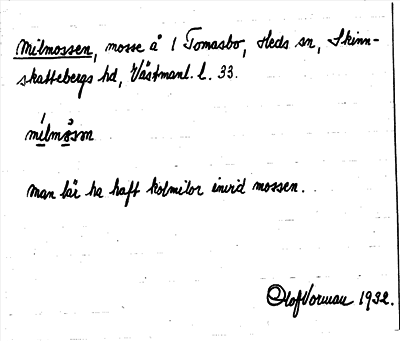 Milmossen, mosse å 1 Tomasbo, Heds sn, Skinn-
skattebergs hd, Västmanl. l. 33.
mìlmåsɷn
Man lär ha haft kolmilor invid mossen.
Olof Vorman 1932.